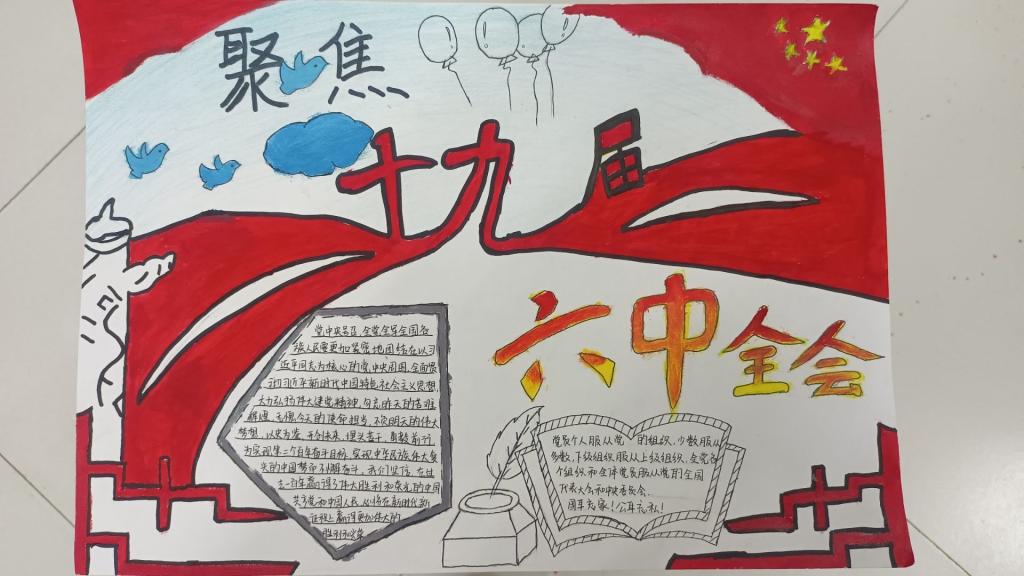 聚焦
十九届
六中全会
党中央号召,全党全军全国各
族人民要更加紧密地团结在以习
近平同志为核心的党中央周围,全面贯
彻习近平新时代中国特色社会主义思想
大力弘扬伟大建党精神,勿忘昨天的苦难
辉煌,无愧今天的使命担当,不负明天的伟大
梦想,以史为鉴、开创未来,埋头苦干、勇毅前行,
为实现第二个百年奋斗目标、实现中华民族伟大复
兴的中国梦而不懈奋斗。我们坚信,在过
去一百年赢得了伟大胜利和荣光的中国
共产党和中国人民,必将在新时代新
征程上赢得更加伟大的
胜利和荣
党员个人服从党的组织,少数服从
多数,下级组织服从上级组织,全党各
个组织和全体党员服从党的全国
代表大会和中央委员会。
忘家!公耳忘私!